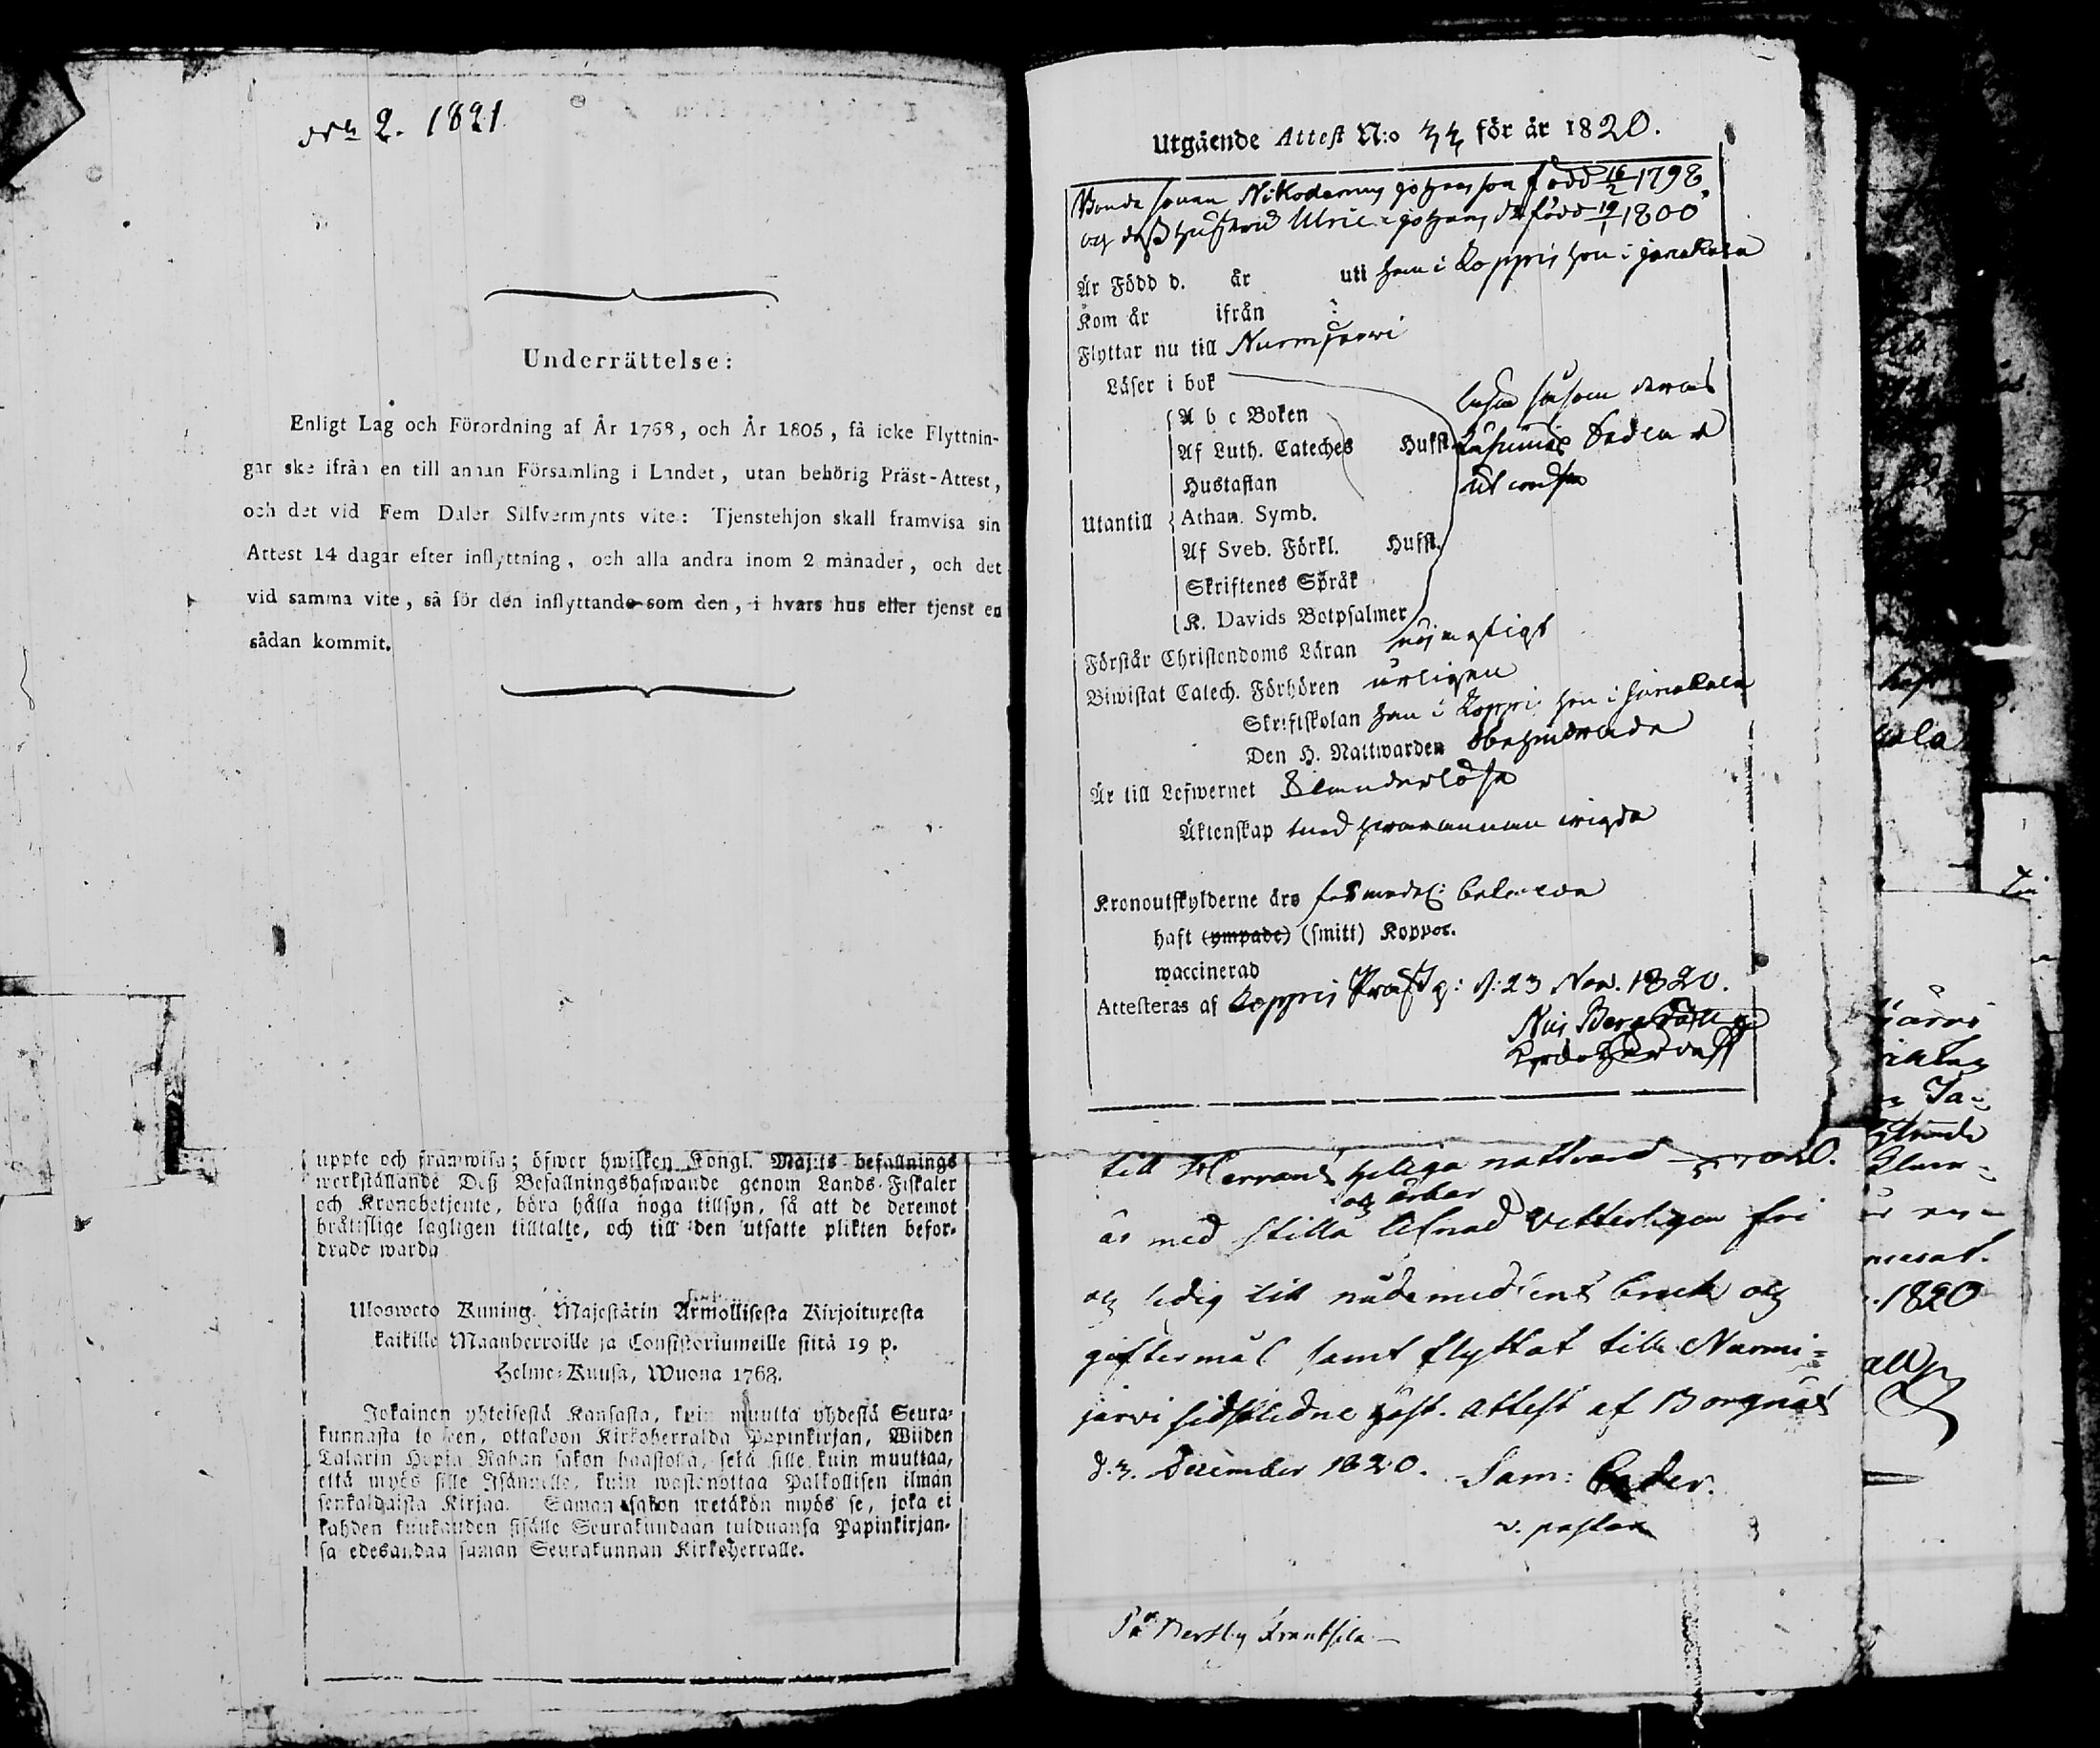 N:o 2. 1821
Underrättelse:
Enligt Lag och Förordning af År 1768, och År 1805, få icke Flyttnin-
gar ske ifrån en till annan Församling i Landet, utan behörig Präst-Attest,
och det vid Fem Daler Silfvermynts vite: Tjenstehjon skall framvisa sin
Attest 14 dagar efter inflyttning, och alla andra inom 2 månader, och det
vid samma vite, så för den inflyttande som den, i hvars hus eller tjenst en
sådan kommit.
uppte och framwisa; öfwer hwilken Kongl. Maj:ts befallnings
werkställande Deß Befallningshafwande genom Lands-Fiskaler
och Kronobetjente, böra hålla noga tillsyn, så att de deremot
bråtislige lagligen tilltalte, och till den utsatte plikten befor-
drade warda
Ulosweto Kuning. Majestätin Armollisesta Kirjoituxesta
kaikille Maanherroille ja Consistoriumeille siitä 19 p.
Helme-Kuusa, Wuona 1763.
Jokainen yhteisestä Kansasta, kuin muutta yhdestä Seura-
kunnasta toiseen, ottakoon Kirkoherralda Papinkirjan, Wiiden
Talarin Hopia Rahan sakon haastolla, sekä sille kuin muuttaa,
että myös sille Isännälle, kuin wastanottaa Palkollisen ilman
senkaldaista Kirjaa. Saman sakon wetäkön myös se, joka ei
kahden kuukauden sisälle Seurakundaan tulduansa Papinkirjan-
sa edesandaa saman Seurakunnan Kirkoherralle.
Utgående Attest N:o 33 för år 1820.
Bonde sonen Nikodemus Johansson född 16/2 1798,
och deß hustru Ulrica Johans dr född 19/1 1800
Är Född d. år uti han i Loppis hon i Janakkala
Kom år ifrån
Flyttar nu till Nurmijärwi
Läser i bok
A b c Boken
Af Luth. Cateches Hufst.
Hustaflan
Utantill Athan. Symb.
Af Sveb. Förkl. Hufst.
Skriftenes Språk
K. Davids Botpsalmer
läsa såsom deras
Läsnings
utwisa
Förstår Christendoms Läran nöjagtigt
Biwistat Catech. Förhören årligen
Skriftskolan han i Loppis hon i Janakkala
Den H. Nattwarden obehindrade
Är till Lefwernet Klanderlösa
Äktenskap med hwarannan wigda
Kronoutskylderne äro
haft (ympade) (smitt) Koppor.
waccinerad
Attesteras af Loppis Prästg: d: 23 Nov. 1820.
till Herrans heliga nattvard
och ärbar
är med stilla lefnad vetterligen fri
och ledig till
giftermål samt flyttat till Nurmi=
järvi sidstledne höst. attest af Borgnäs
d. 3. December 1820. Sam:
v. pastor
På